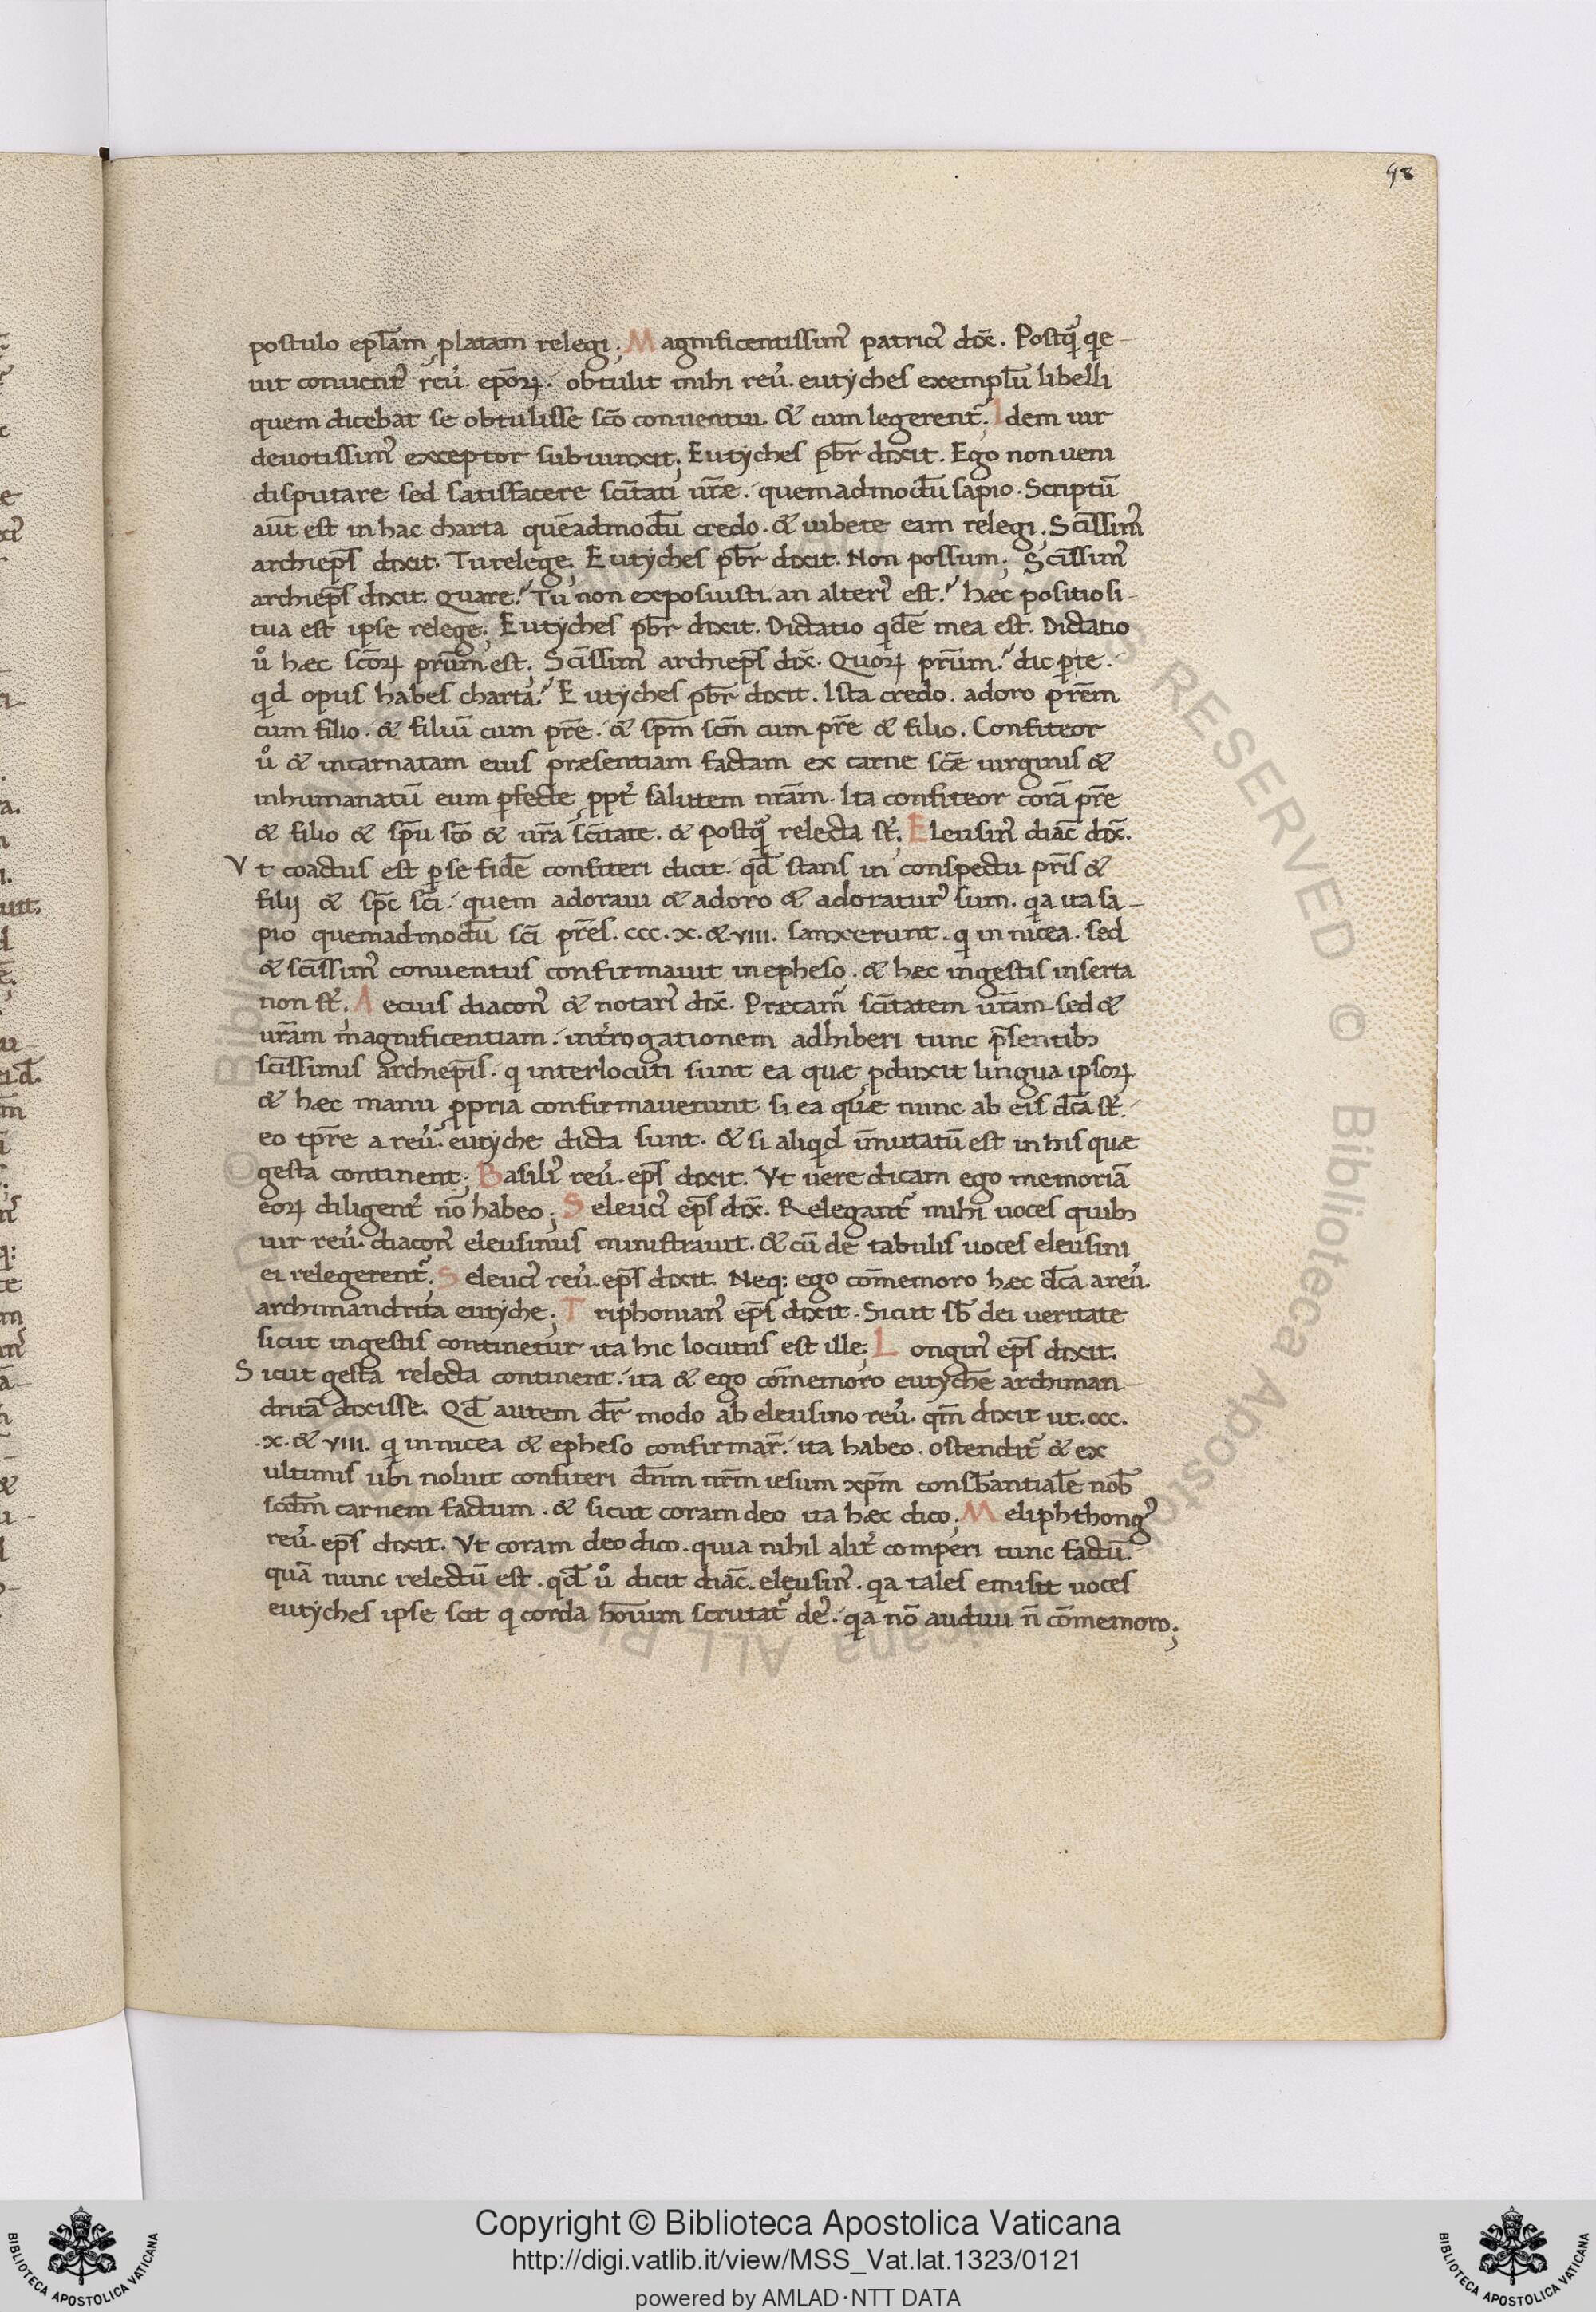 48
postulo epłam platam relegi. Magnificentissimꝰ patriciꝰ dix̄. Postq̃ qe-
uit conuentꝰ reu. ep̄oꝝ. obtulit mihi reu. eutyches exemplū libelli
quem dicebat se obtulisse sc̄o conuentui. & cum legerent᷑. Idem uir
deuotissimꝰ exceptor subiunxit; Eutyches pb̄r dixit. Ego non ueni
disputare sed satisfacere sc̄itati ur̄æ. quemadmodū sapio. Scriptū
aūt est in hac charta quēadmodū credo. & iubete eam relegi. Sc̄issimꝰ
archiep̄s dixit. Tu relege; Eutyches pb̄r dixit. Non possum; Sc̄issimꝰ
archiep̄s dixit. Quare? Tu non exposuisti. an alteriꝰ est? hæc positio si-
tua est ipse relege; Eutyches pb̄r dixit. Dictatio qidē mea est. Dictatio
uͦ hæc sc̄oꝝ pr̄um est; Sc̄issimꝰ archiep̄s dix̄. Quoꝝ pr̄um? dic ꝑ te.
qid opus habes charta? Eutyches pb̄r dixit. Ista credo. adoro pr̄em
cum filio. & filiū cum pr̄e. & sp̄m sc̄m cum pr̄e & filio. Confiteor
uͦ & incarnatam eius præsentiam factam ex carne sc̄æ uirginis &
inhumanatū eum ꝑfecte ꝓpt̾ salutem nr̄am. Ita confiteor corā pr̄e
& filio & sp̄u sc̄o & ur̄a sc̄itate. & postq̃ relecta st̾. Eleusinꝰ diac̄ dix̄.
Vt coactus est ꝑ se fidē confiteri dicit. qd̄ stans in conspectu pr̄is &
filij & sp̄c sc̄i. quem adoraui & adoro & adoraturꝰ sum. qia ita sa-
pio quemadmodū sc̄i pr̄es. ccc. x. & viii. sanxerunt. qi in nicea. sed
& sc̄issimꝰ conuentus confirmauit in epheso. & hæc in gestis inserta
non st̾. Aecius diaconꝰ & notariꝰ dix̄. Præcam᷑ sc̄itatem ur̄am sed &
ur̄am magnificentiam. int̾rogationem adhiberi tunc p̄sentibꝫ
sc̄issimis archiep̄is. qi interlocuti sunt ea quæ ꝓduxit lingua ipsoꝝ
& hæc manu ꝓpria confirmauerunt si ea quæ nunc ab eis dc̄a st̾.
eo tp̄re a reu. eutyche dicta sunt. & si aliqid īmutatū est in his quæ
gesta continent; Basiliꝰ reu. ep̄s dixit. Vt uere dicam ego memoriā
eoꝝ diligent̾ nō habeo; Seleuciꝰ ep̄s dix̄. Relegant᷑ mihi uoces quibꝫ
uir reu. diaconꝰ eleusinus ministrauit. & cū de tabulis uoces eleusini
ei relegerent᷑. Seleuciꝰ reu. ep̄s dixit. Neq: ego cōmemoro hæc dc̄a a reu.
archimandrita eutyche; Triphonianꝰ ep̄s dixit. Sicut sb̄ dei ueritate
sicut in gestis continetur ita hic locutus est ille; Longinꝰ ep̄s dixit.
Sicut gesta relecta continent. ita & ego cōmemoro eutychē archiman-
dritā dixisse. Qd̄ autem dr̄ modo ab eleusino reu. qm̄ dixit ut. ccc.
.x. & viii. qi in nicea & epheso confirmar̄. ita habeo. ostendit᷑ & ex
ultimis ubi noluit confiteri dn̄m nr̄m iesum xp̄m consb̄antialē nob̄
scd̄m carnem factum. & sicut coram deo ita hæc dico; Meliphthongꝰ
reu. ep̄s dixit. Vt coram deo dico. quia nihil alit̾ comperi tunc factū.
quā nunc relectū est. qd̄ uͦ dicit diac̄. eleusinꝰ. qia tales emisit uoces
eutyches ipse scit qi corda hōium scrutat᷑ deꝰ. qia nō audiui n̄ cōmemoro;
Copyright © Biblioteca Apostolica Vaticana
http://digi.vatlib.it/view/MSS_Vat.lat.1323/0121
powered by AMLAD·NTT DATA